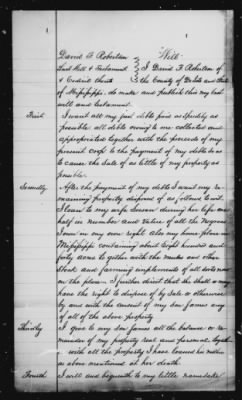 David F Robertson Will
Last Will & Testament I David F Robertson of
& Codicil thereto the County of De Soto and State
of Mississippi do make and publish this my last
will and testament.
First I want all my just debts paid as speedily as
possible all debts owing to me collected and
appropriated together with the proceeds of my
present crops to the payment of my debts so as
to cause the Sale of as little of my property as
possible.
Secondly After the payment of my debts I want my re-
maining property disposed of as follows to wit.
I loan to my wife Susan during her life one
half in number and value of all the Negroes
I own in my own right also my home place in
Mississippi containing about Eight hundred and
forty acres together with the mules and other
Stock and farming implements of all sorts now
on the place. I further direct that she shall
have the right to dispose of by Sale or otherwise
by and with the consent of my Son James any
of all of the above property.
Thirdly I give to my Son James all the balance or re-
mainder of my property real and personal together
with all the property I have loaned his mother
as above mentioned at her death.
Fourth I will and bequeath to my little namesake